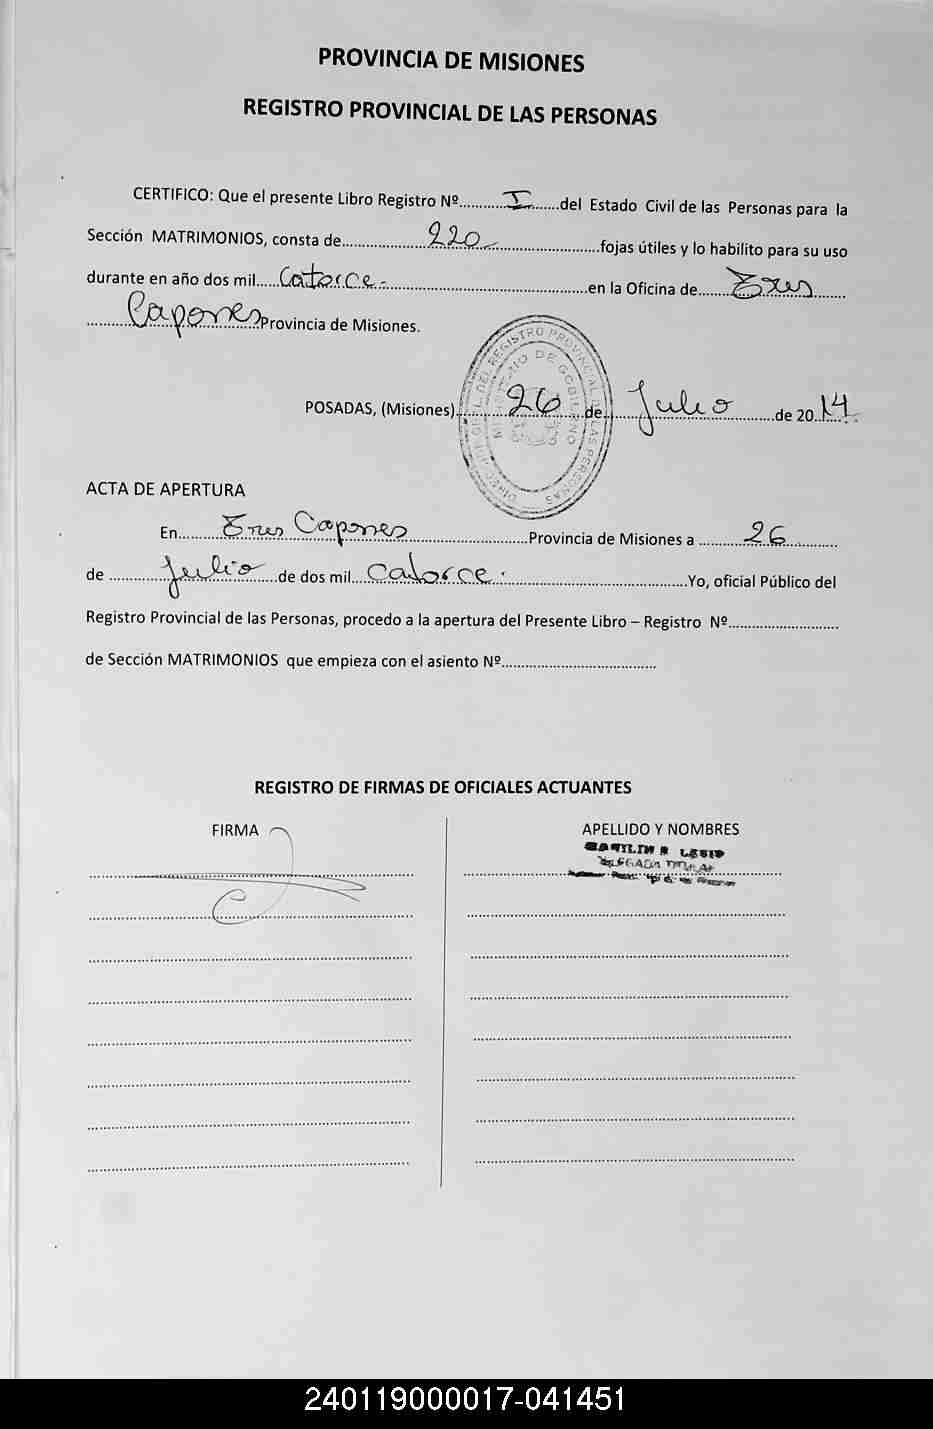 PROVINCIA DE MISIONES
REGISTRO PROVINCIAL DE LAS PERSONAS
CERTIFICO: Que el presente Libro Registro Nº............I.......del Estado Civil de las Personas para la
Sección MATRIMONIOS, consta de................220.....................fojas útiles y lo habilito para su uso
durante en año dos mil.....Catorce.-..........................................en la Oficina de........Tres........
.........Capones Provincia de Misiones.
POSADAS, (Misiones)..........26......de.......Julio...........de 2014.
DIRECCION GRAL. DEL REGISTRO PROVINCIAL DE LAS PERSONAS
MINISTERIO DE GOBIERNO
ACTA DE APERTURA
En.........Tres Capones..........................Provincia de Misiones a ..........26..........
de ............Julio.....de dos mil....Catorce.........................................Yo, oficial Público del
Registro Provincial de las Personas, procedo a la apertura del Presente Libro – Registro Nº............................
de Sección MATRIMONIOS que empieza con el asiento Nº.......................................
REGISTRO DE FIRMAS DE OFICIALES ACTUANTES
FIRMA
APELLIDO Y NOMBRES
DELEGADA TITULAR
240119000017-041451